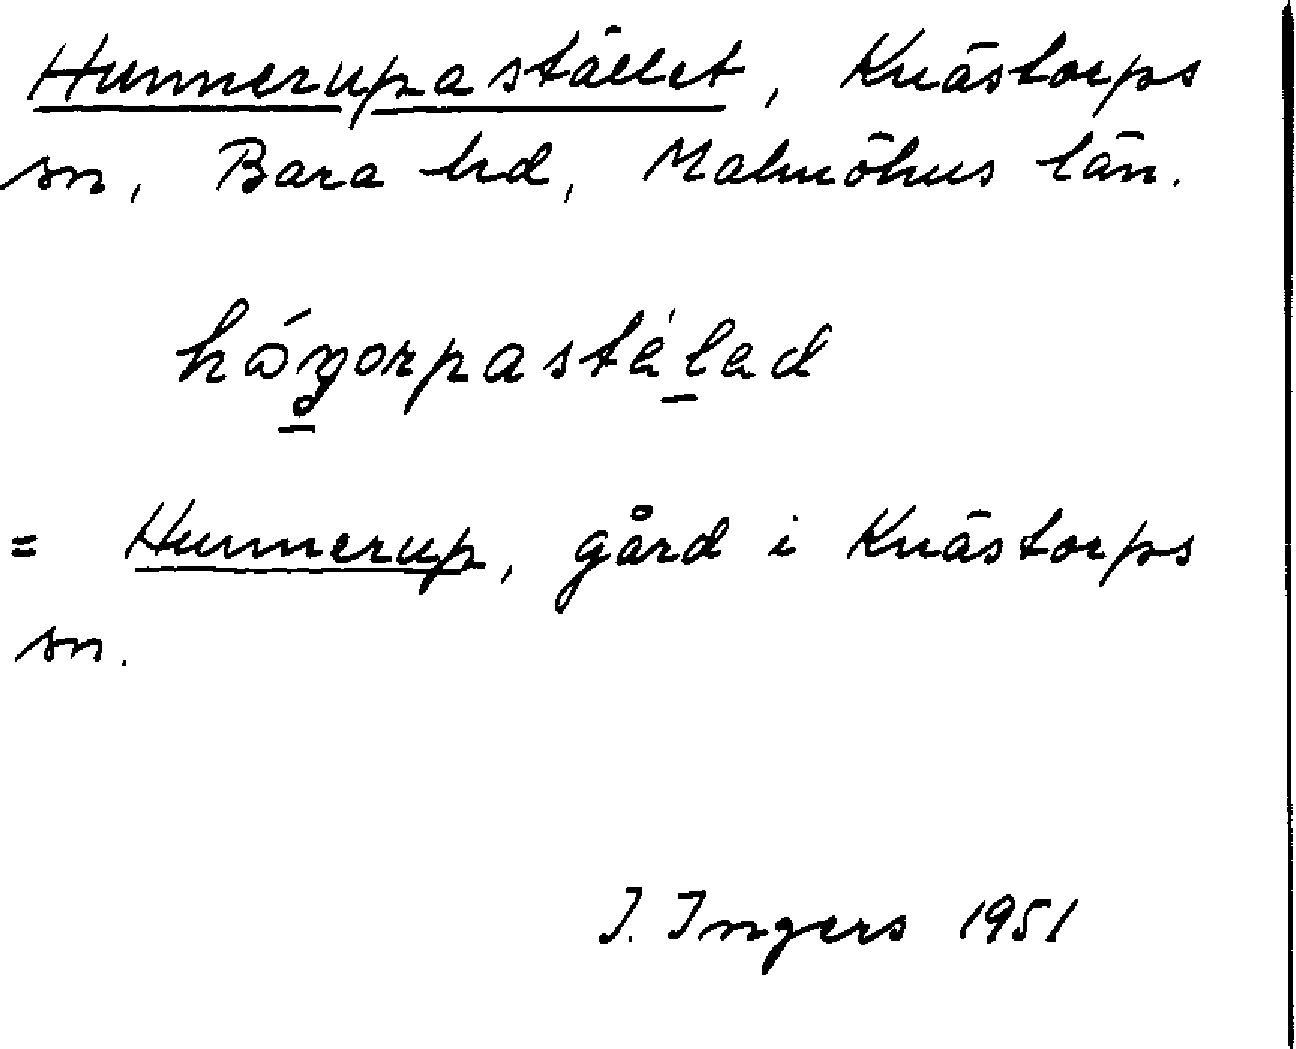 Hunnerupastället, Knästorps
sn, Bara hd, Malmöhus län.
= Hunnerup, gård i Knästorps
sn.
I. Ingers 1951